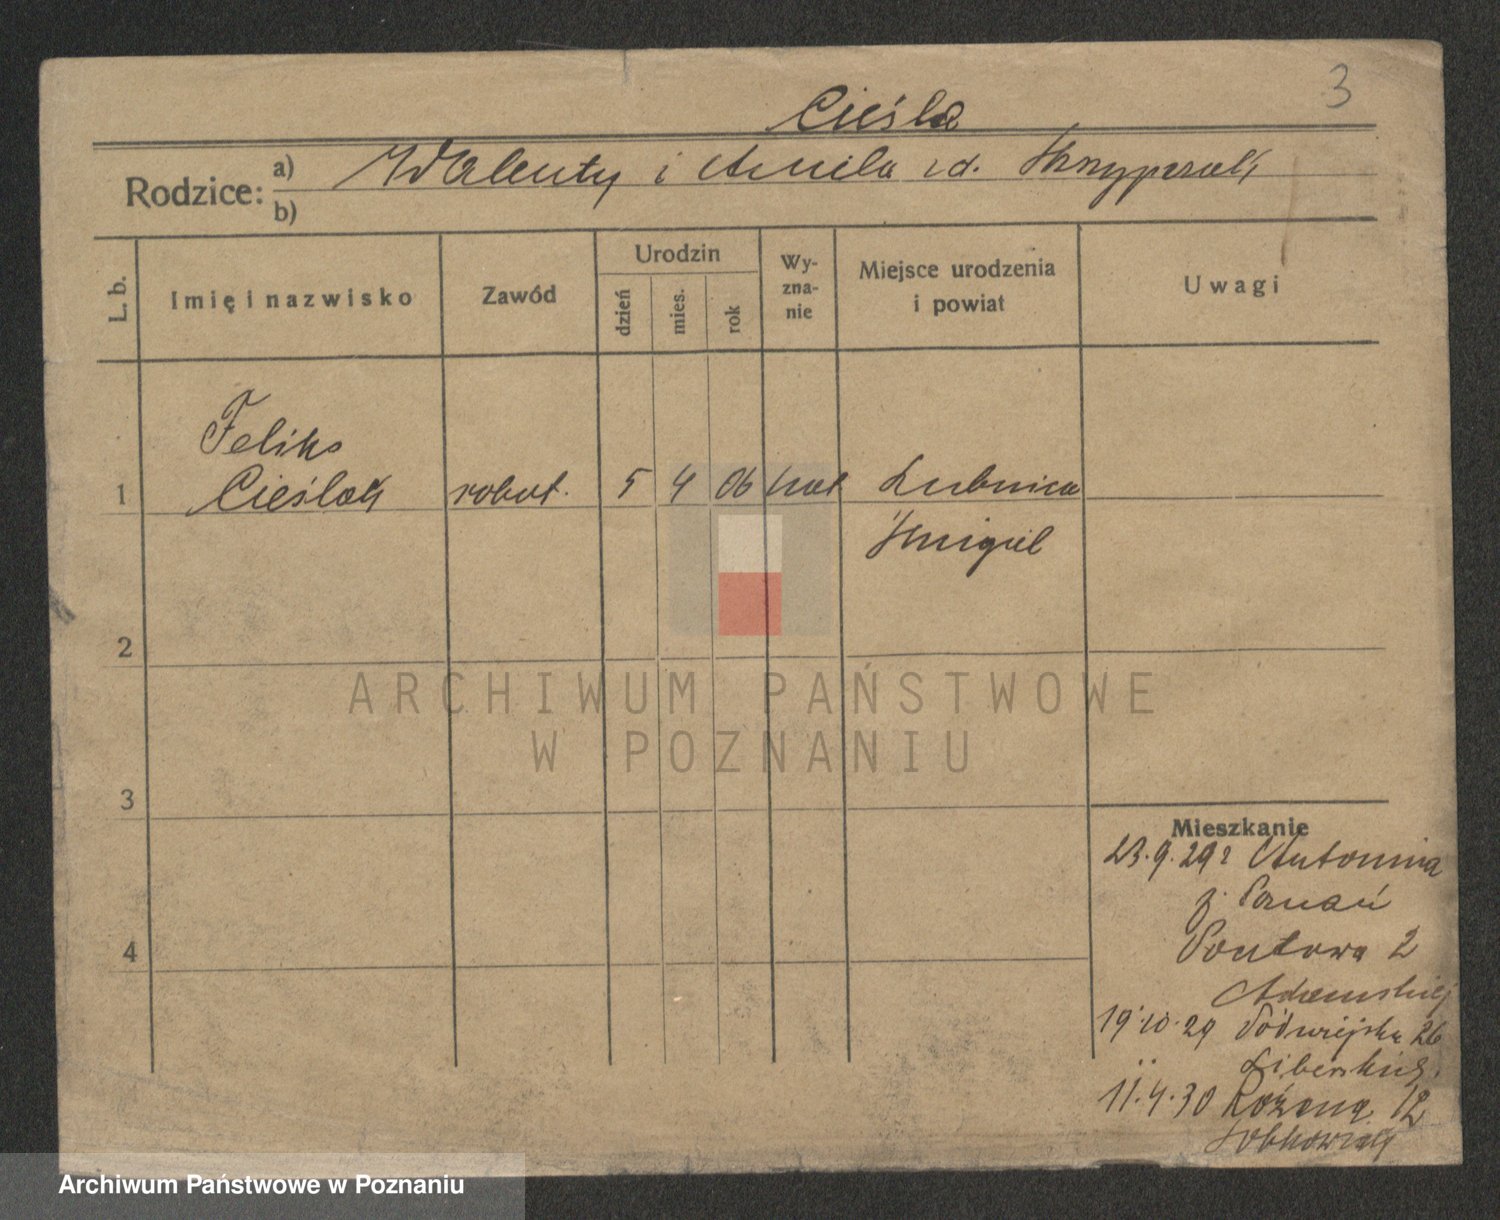 3
Cieśla
Rodzice: a) Walenty i Aniela z d. Skrzypczak
b)
L. b. Imię i nazwisko Zawód Urodzin dzień mies. rok Wy-zna-nie Miejsce urodzenia i powiat Uwagi
Feliks
1 Cieślak robot. 5 4 06 kat Lubnica
Śmigiel
2
ARCHIWUM PAŃSTWOWE
W POZNANIU
3
Mieszkanie
23.9.29 Antonina
Poznań
2
4
Adamskiej
19.10.29 Półwiejska 26
Liberskiej
11.4.30 Różana 12
Archiwum Państwowe w Poznaniu